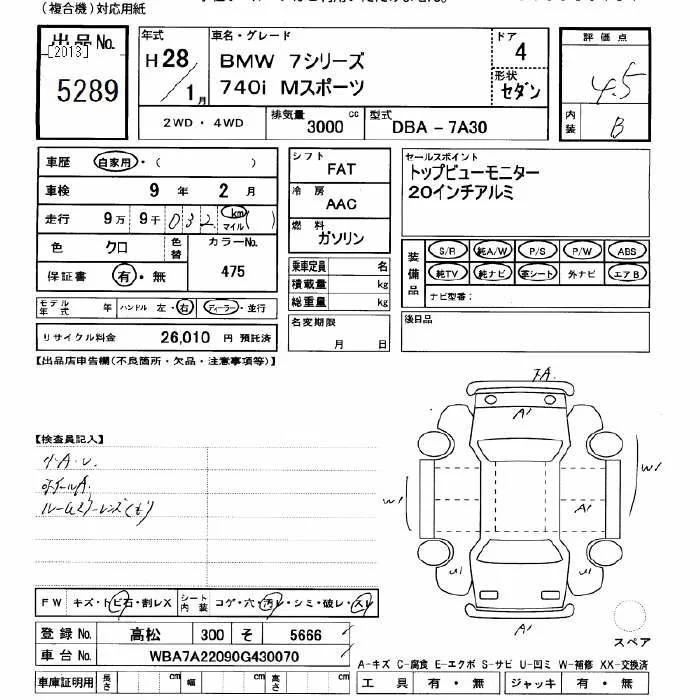 (複合機)対応用紙
出品No. 年式 車名・グレード ドア 評価点
[2013] H28 BMW 7シリーズ 4 4.5
5289 1月 740i Mスポーツ 形状 セダン 内装 B
2WD・4WD 排気量 3000 cc 型式 DBA-7A30
車歴 自家用・( )
車検 9年 2月
走行 9万 9千 032 km マイル ( )
色 クロ 色替 カラーNo.
保証書 有・無 475
モデル年式 年 ハンドル 左・右 ディーラー・並行
リサイクル料金 26,010 円 預託済
シフト FAT
冷房 AAC
燃料 ガソリン
乗車定員 名
積載量 kg
総重量 kg
名変期限
月 日
セールスポイント
トップビューモニター
20インチアルミ
装備品 S/R 純A/W P/S P/W ABS
純TV 純ナビ 革シート 外ナビ エアB
ナビ型番:
後日品
【出品店申告欄(不良箇所・欠品・注意事項等)】
【検査員記入】
小A.U.
ホイールA.
A1
W1
W1
A1
U1
U1
A1
スペア
FW キズ・トビ石・割レX シート内装 コゲ・穴・汚レ・シミ・破レ・スレ
登録No. 高松 300 そ 5666
車台No. WBA7A22090G430070
車庫証明用 長さ cm 幅 cm 高さ cm
A-キズ C-腐食 E-エクボ S-サビ U-凹ミ W-補修 XX-交換済
工具 有・無 ジャッキ 有・無